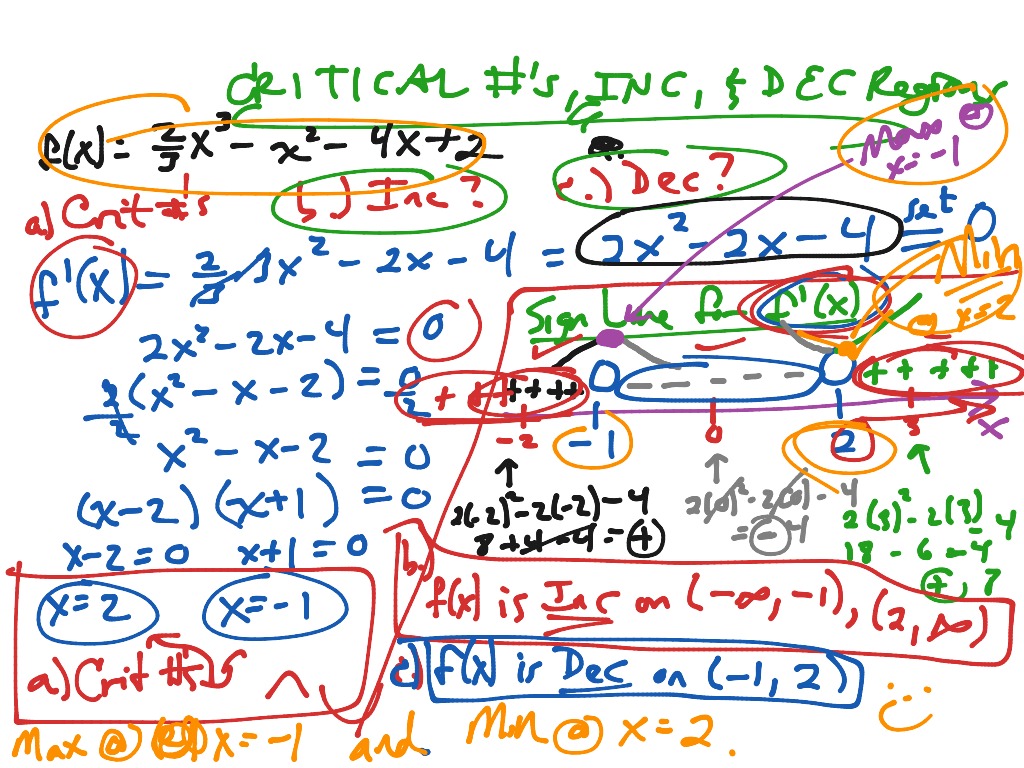 CRITICAL #'s, INC, & DEC Regions
f(x) = 2/3 x³ - x² - 4x + 2
Max @ x = -1
a.) Crit #'s b.) Inc? c.) Dec?
f'(x) = 2/3 · 3x² - 2x - 4 = 2x² - 2x - 4 set = 0
Min @ x = 2
Sign Line for f'(x)
2x² - 2x - 4 = 0
2(x² - x - 2) = 0
2 2
+ ++ ++++ 0 - - - - - 0 + + + ++
-2 -1 0 2 3 x
x² - x - 2 = 0
(x - 2) (x + 1) = 0
x - 2 = 0 x + 1 = 0
2(-2)² - 2(-2) - 4
8 + 4 - 4 = +
2(0)² - 2(0) - 4
= - 4
2(3)² - 2(3) - 4
18 - 6 - 4
+, 8
x = 2 x = -1
a.) Crit #'s
b.) f(x) is Inc on (-∞, -1), (2, ∞)
c.) f(x) is Dec on (-1, 2)
Max @ x = -1 and Min @ x = 2.